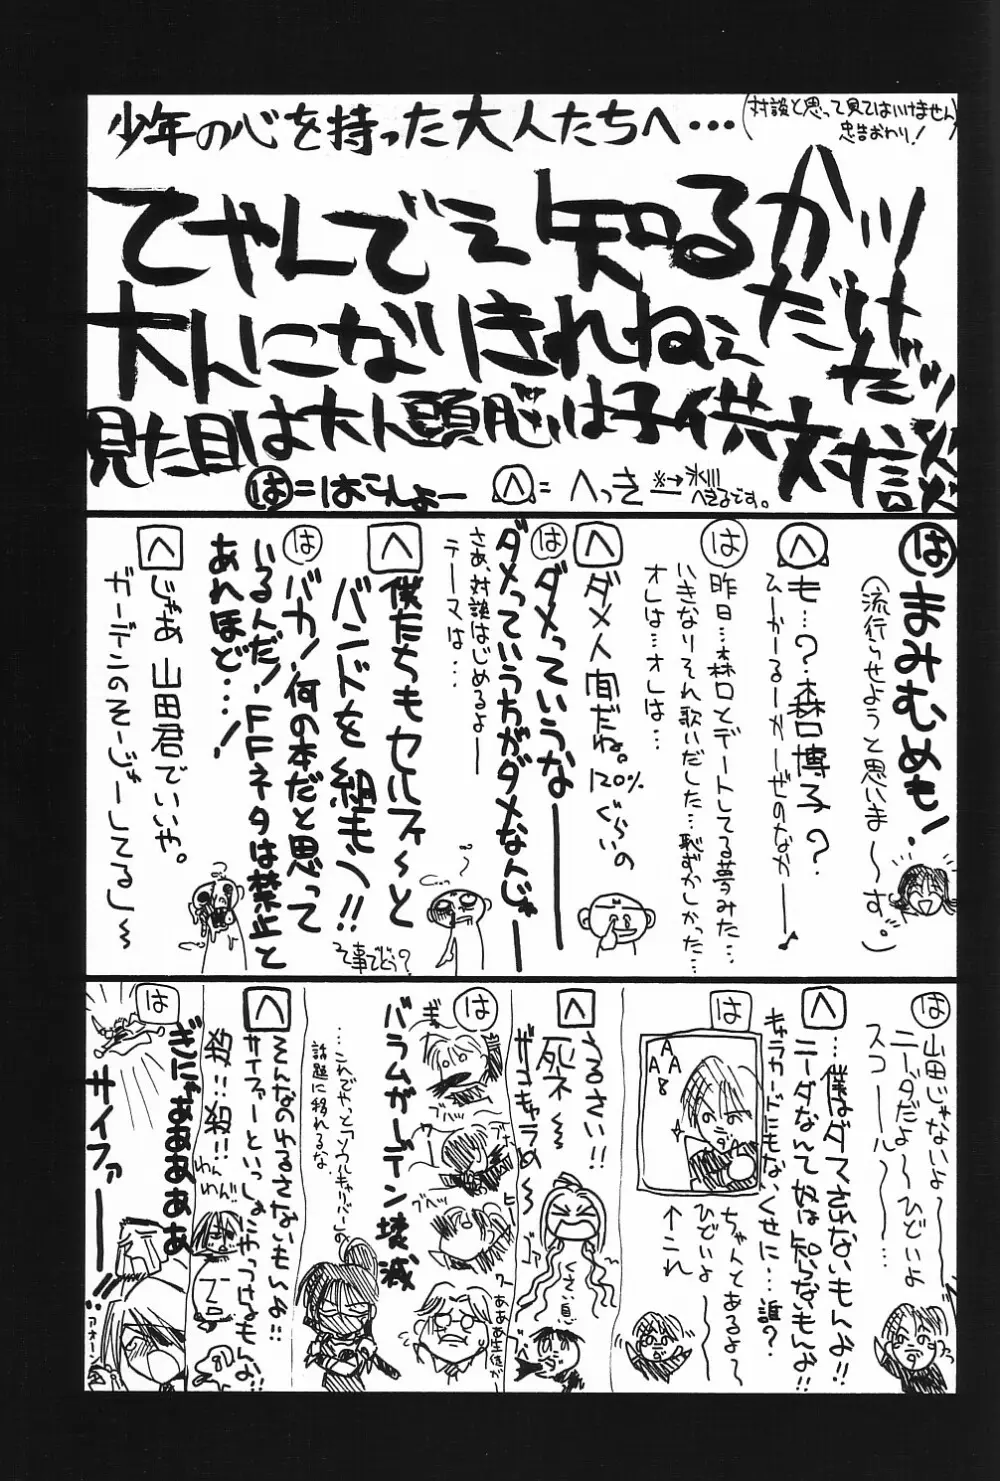 少年の心を持った大人たちへ…
(対談と思って見てはいけません
忠告おわり!)
てやんでぇ知るかッ
大人になりきれねぇ
だけだッ
見た目は大人頭脳は子供対談
は=はこんよー
へ=へっき
※→氷川
へきるです。
は まみむめも!
(流行らせようと思いま〜す。)
へ も…?森口博子?
ムーかーるーかーぜのなかー♪
は 昨日…森口とデートしてる夢みた…
いきなりそれ歌いだした…恥ずかしかった…
オレは…オレは…
へ ダメ人間だね。120%ぐらいの
は ダメっていうなーーー
ダメっていうちがダメなんじゃーー
さあ、対談はじめるよー
テーマは…
へ 僕たちもセルフィ〜と
バンドを組もう!!
て事でどう?
は バカ!何の本だと思って
いるんだ!FFネタは禁止と
あれほど…!
へ じゃあ山田君でいいや。
ガーデンのそーじゃーしてるし〜
は 山田じゃないよ〜
ニーダだよ〜ひどいよ
スコール〜…
へ …僕はダマされないもんよ!!
ニーダなんて奴は知らないもんよ!!
キャラカードもないくせに…誰?
は ちゃんとあるよ〜
ひどいよ〜
↑コレ
A
A
A
8
へ うるさい!!
死ネ〜
ザコキャラめ〜
くさい息
は バラムガーデン壊滅
ブハッ
ブヘッ
アホ
うーあああ生徒が
…これでやっとアソウルキャリバーの
話題に移れるな
へ そんなのゆるさないもんよ!!
サイファーといっしょにやっつけるもんよ!!
拾…拾…拾!!
わんわん!!
は ぎにゃああああああ
サイファーーー!!